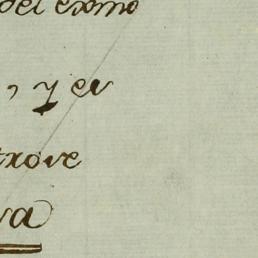 del exmo
, y en
trove
va